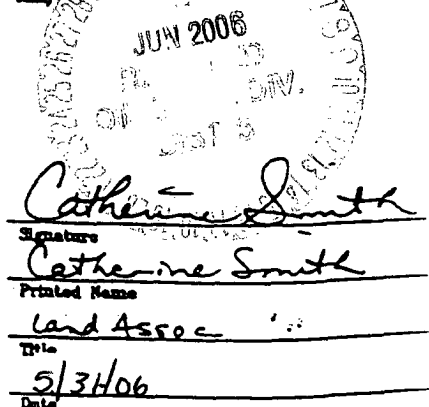 JUN 2006
DIV.
Catherine Smith
Signature
Catherine Smith
Printed Name
Land Assoc
Title
5/31/06
Date